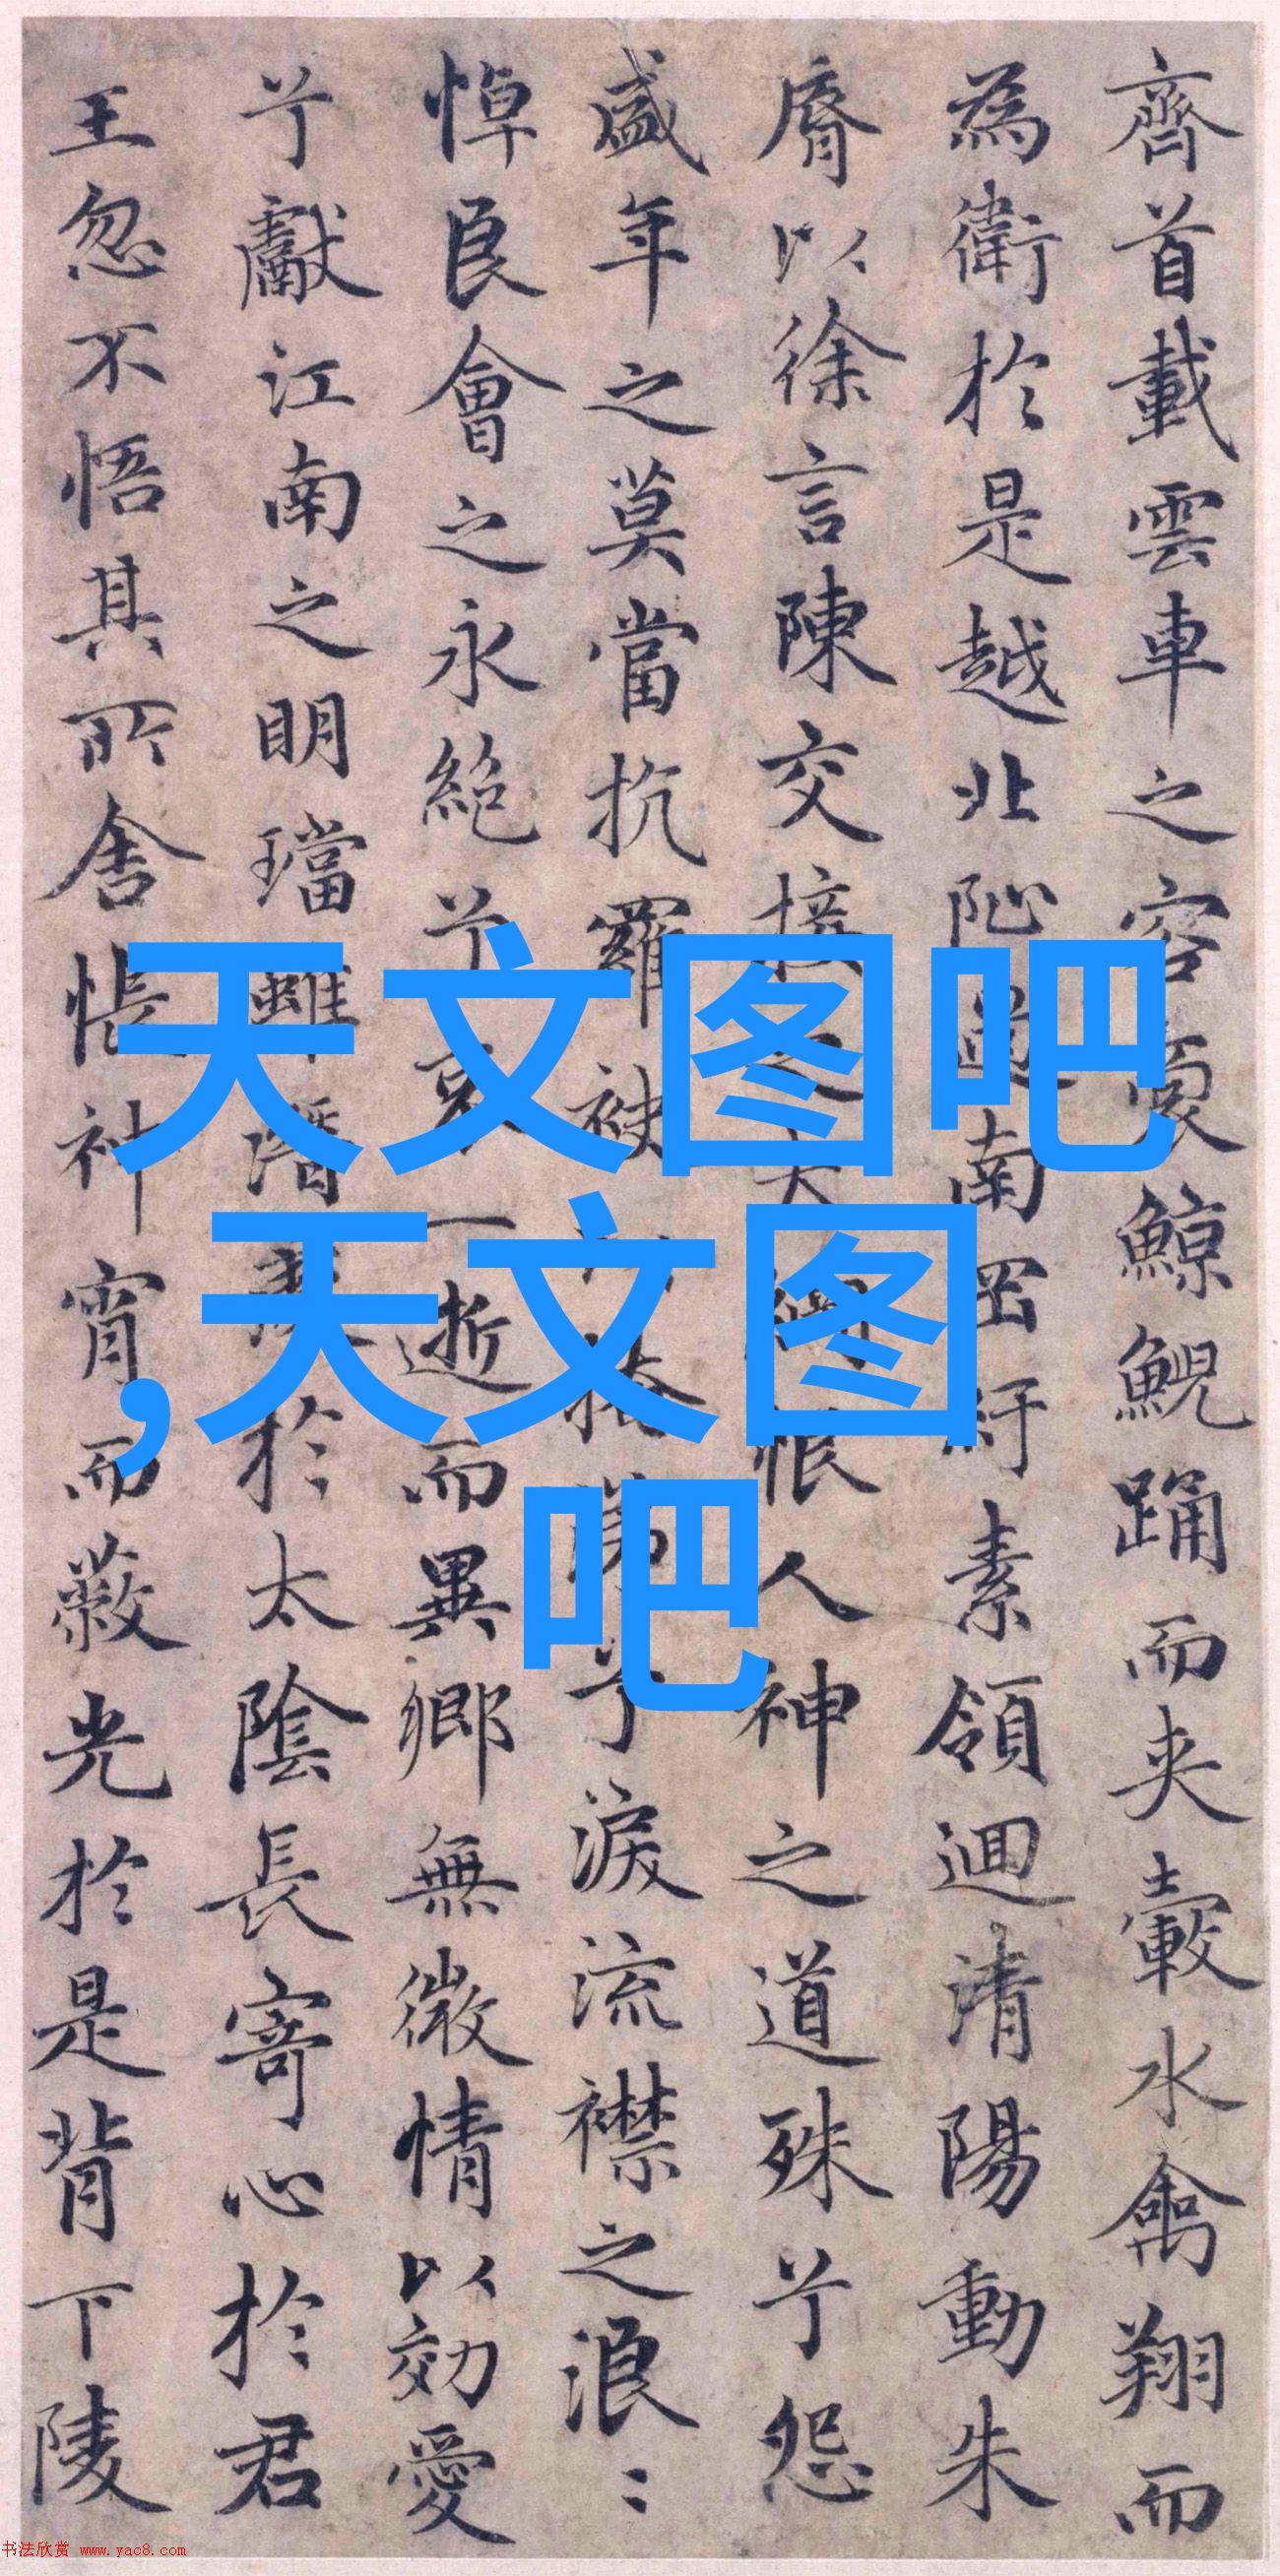 齊首載雲車之容裔鯨鯢踴而夾轂水禽翔而
為衛於是越北阯過南岡紆素領迴清陽動朱
脣以徐言陳交接之大綱恨人神之道殊兮怨
盛年之莫當抗羅袂以掩涕兮淚流襟之浪〻
悼良會之永絕兮哀一逝而異鄉無微情以効愛
兮獻江南之明璫雖潛處於太陰長寄心於君
王忽不悟其所舍悵神宵而蔽光於是背下陵
天文图吧
,天文图
吧
书法欣赏 www.yac8.com